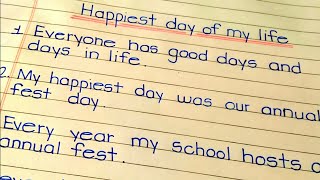 Happiest day of my life
1. Everyone has good days and
days in life.
2. My happiest day was our annual
fest day.
Every year my school hosts
annual fest.